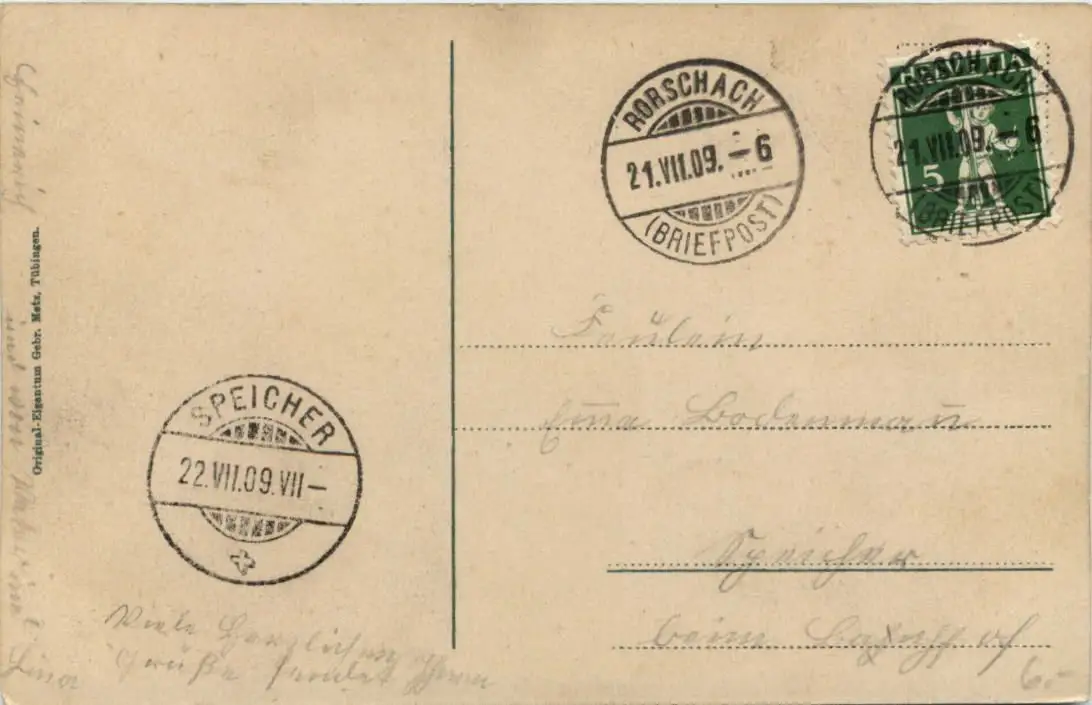 RORSCHACH
21.VII.09. – 6
(BRIEFPOST)
RORSCHACH
21.VII.09. – 6
(BRIEFPOST)
5
Original-Eigentum Gebr. Metz, Tübingen.
SPEICHER
22.VII.09.VII –
Fräulein
Bodenmann
Speicher
beim
Viele Herzlichen
Grüße sendet
Lina
6.-